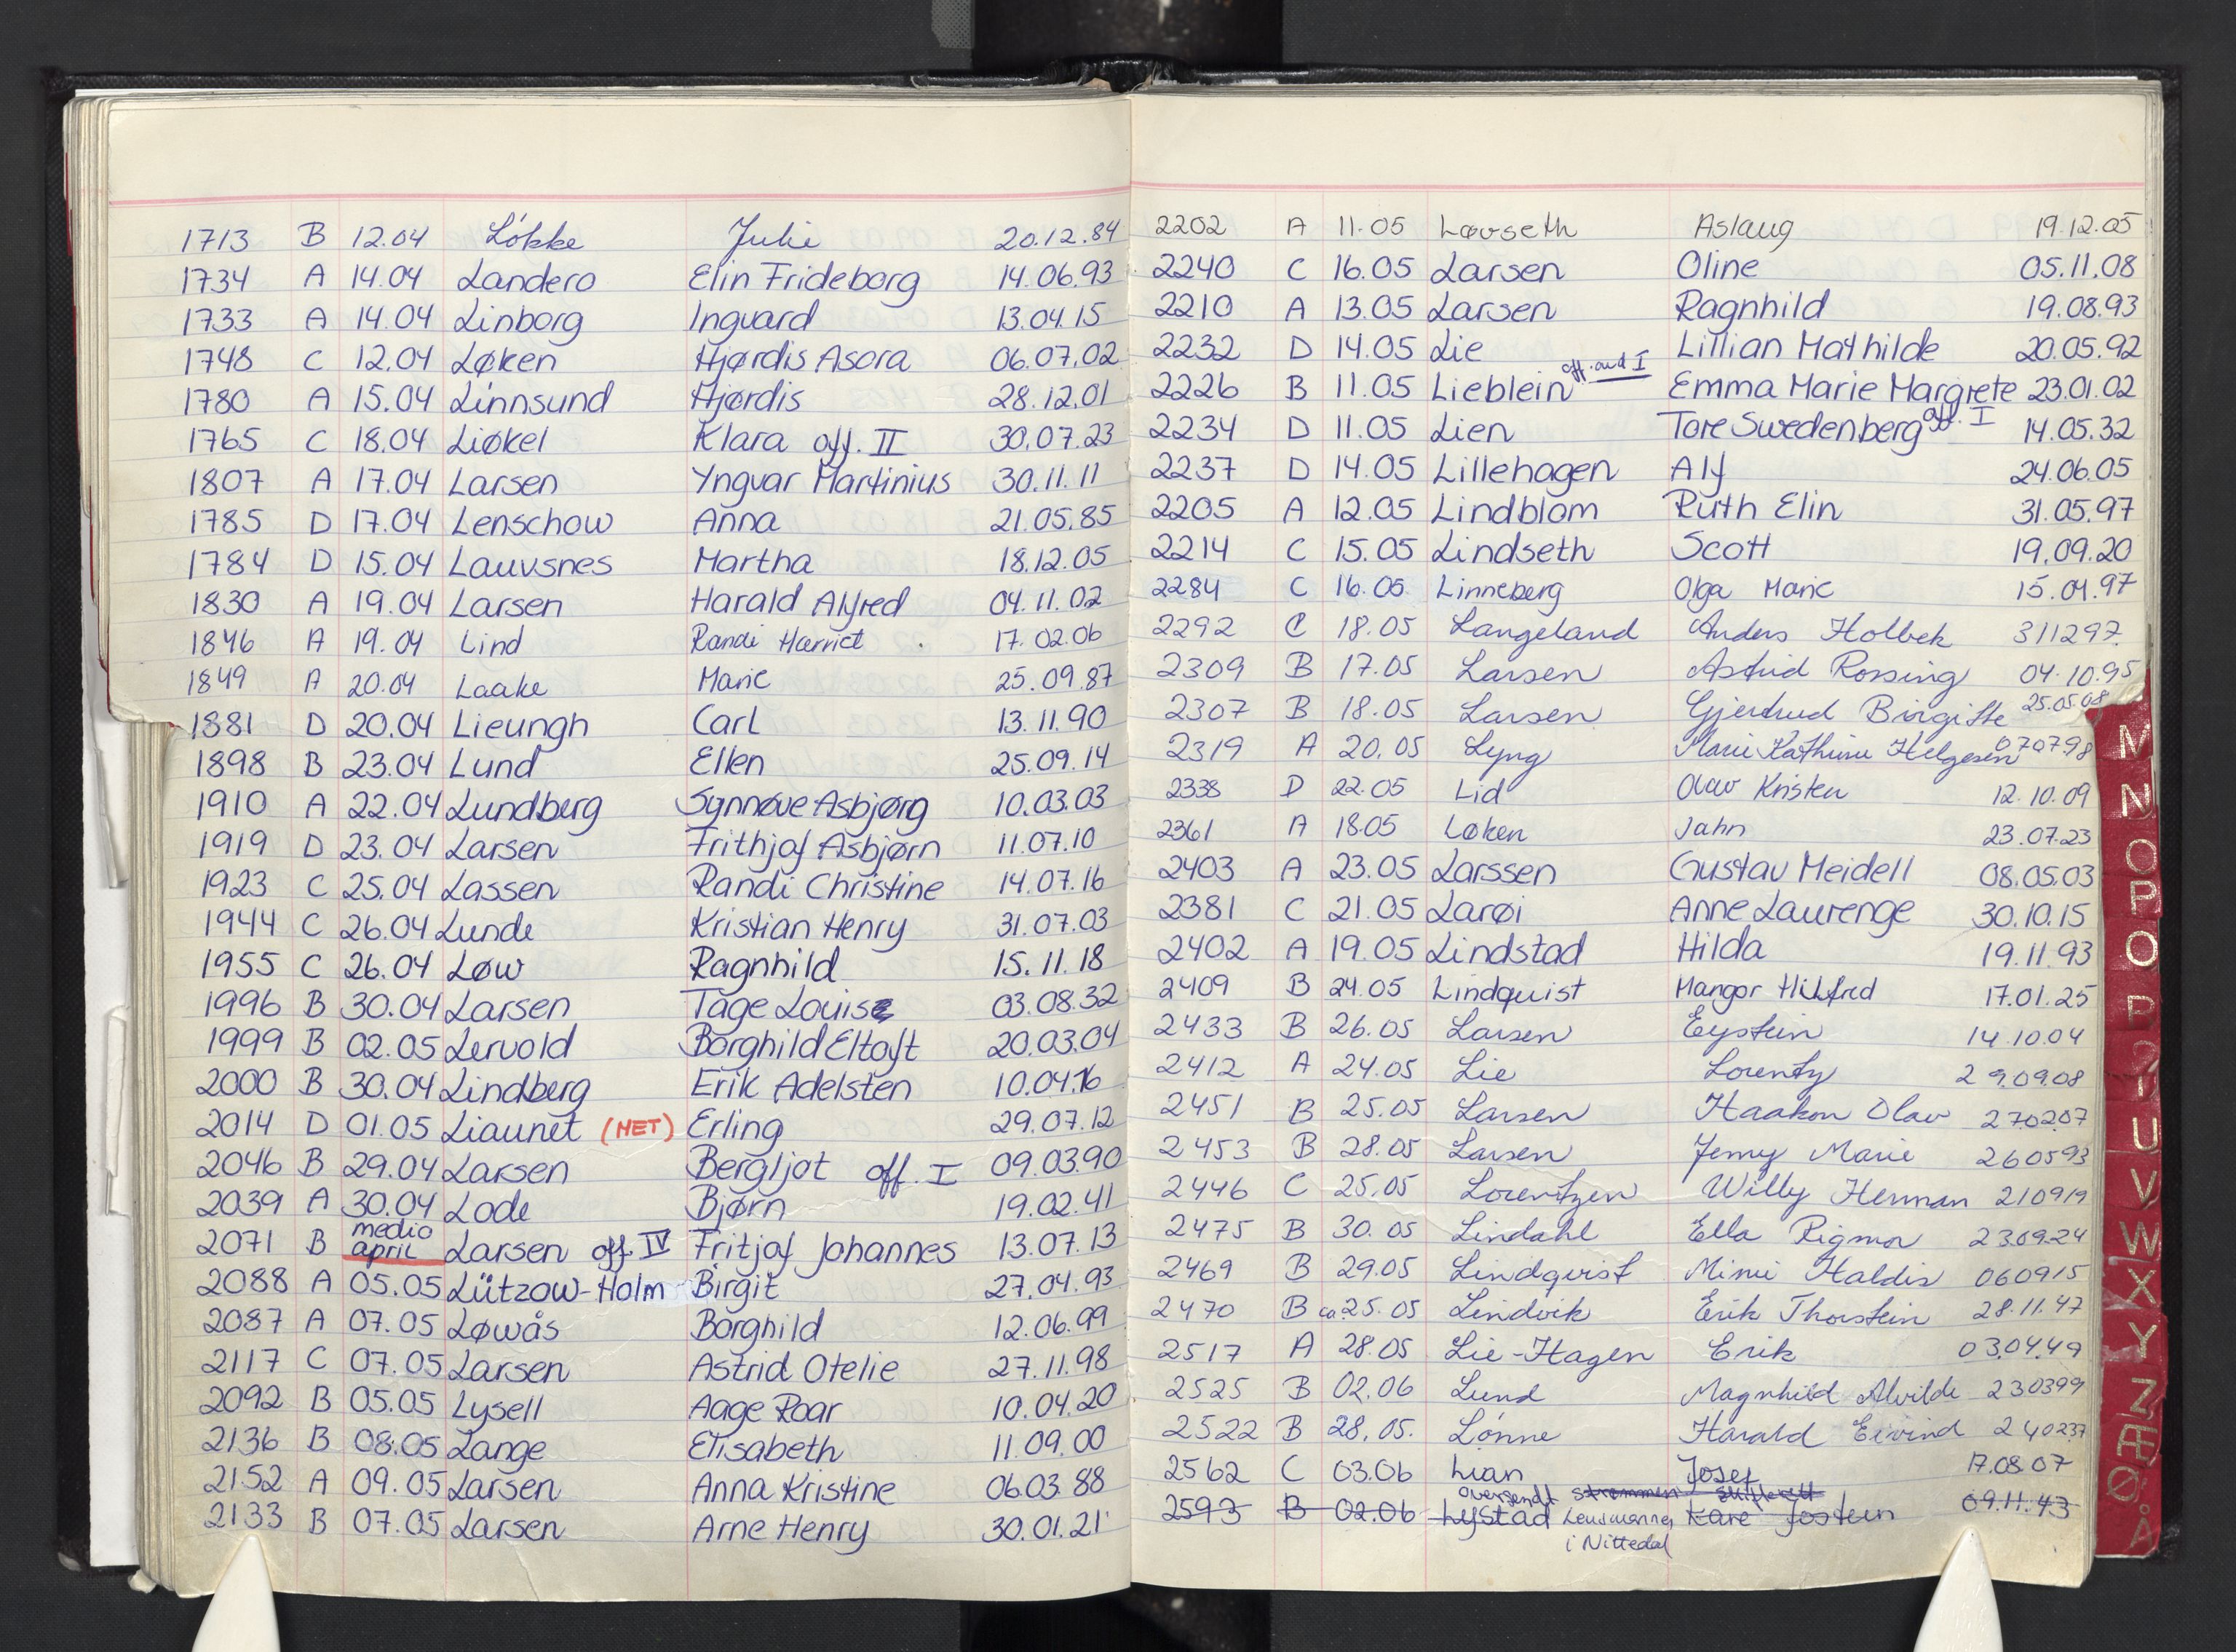 1713 B 12.04 Løkke Julie 20.12.84
1734 A 14.04 Landero Elin Frideborg 14.06.93
1733 A 14.04 Linborg Ingvard 13.04.15
1748 C 12.04 Løken Hjørdis Asora 06.07.02
1780 A 15.04 Linnsund Hjørdis 28.12.01
1765 C 18.04 Liøkel Klara off. II 30.07.23
1807 A 17.04 Larsen Yngvar Martinius 30.11.11
1785 D 17.04 Lenschow Anna 21.05.85
1784 D 15.04 Lauvsnes Martha 18.12.05
1830 A 19.04 Larsen Harald Alfred 04.11.02
1846 A 19.04 Lind Randi Harriet 17.02.06
1849 A 20.04 Laake Marie 25.09.87
1881 D 20.04 Lieungh Carl 13.11.90
1898 B 23.04 Lund Ellen 25.09.14
1910 A 22.04 Lundberg Synnøve Asbjørg 10.03.03
1919 D 23.04 Larsen Frithjof Asbjørn 11.07.10
1923 C 25.04 Lassen Randi Christine 14.07.16
1944 C 26.04 Lunde Kristian Henry 31.07.03
1955 C 26.04 Løw Ragnhild 15.11.18
1996 B 30.04 Larsen Tage Louis 03.08.32
1999 B 02.05 Lervold Borghild Eltoft 20.03.04
2000 B 30.04 Lindberg Erik Adelsten 10.04.16
2014 D 01.05 Liaunet (MET) Erling 29.07.12
2046 B 29.04 Larsen Bergljot off. I 09.03.90
2039 A 30.04 Lode Bjørn 19.02.41
2071 B medio april Larsen off. IV Fritjof Johannes 13.07.13
2088 A 05.05 Lützow-Holm Birgit 27.04.93
2087 A 07.05 Løwås Borghild 12.06.99
2117 C 07.05 Larsen Astrid Otelie 27.11.98
2092 B 05.05 Lysell Aage Roar 10.04.20
2136 B 08.05 Lange Elisabeth 11.09.00
2152 A 09.05 Larsen Anna Kristine 06.03.88
2133 B 07.05 Larsen Arne Henry 30.01.21
2202 A 11.05 Løvseth Aslaug 19.12.05
2240 C 16.05 Larsen Oline 05.11.08
2210 A 13.05 Larsen Ragnhild 19.08.93
2232 D 14.05 Lie Lillian Mathilde 20.05.92
2226 B 11.05 Lieblein off. avd I Emma Marie Margrete 23.01.02
2234 D 11.05 Lien Tore Swedenberg off. I 14.05.32
2237 D 14.05 Lillehagen Alf 24.06.05
2205 A 12.05 Lindblom Ruth Elin 31.05.97
2214 C 15.05 Lindseth Scott 19.09.20
2284 C 16.05 Linneberg Olga Marie 15.04.97
2292 C 18.05 Langeland Anders Holbek 311297
2309 B 17.05 Larsen Astrid Rossing 04.10.95
2307 B 18.05 Larsen Gjertrud Birgitte 25.05.08
2319 A 20.05 Lyng Marie Kathrine Helgesen 070798
2338 D 22.05 Lid Olav Kristen 12.10.09
2361 A 18.05 Løken Jahn 23.07.23
2403 A 23.05 Larssen Gustav Meidell 08.05.03
2381 C 21.05 Larøi Anne Laurenge 30.10.15
2402 A 19.05 Lindstad Hilda 19.11.93
2409 B 24.05 Lindquist Mangor 17.01.25
2433 B 26.05 Larsen Eystein 14.10.04
2412 A 24.05 Lie Lorentz 29.09.08
2451 B 25.05 Larsen Haakon Olav 270207
2453 B 28.05 Larsen Jenny Marie 260593
2446 C 25.05 Lorentzen Willy Herman 210919
2475 B 30.05 Lindahl Ella Rigmor 230924
2469 B 29.05 Lindqvist Mimi Haldis 060915
2470 B ca 25.05 Lindvik Erik Thorstein 28.11.47
2517 A 28.05 Lie-Hagen Erik 03.04.49
2525 B 02.06 Lund Magnhild Alvilde 230399
2522 B 28.05. Lønne Harald Eivind 240237
2562 C 03.06 Lian Josef 17.08.07
oversendt strømmen skifterett
2593 B 02.06 Lystad Lensmannen Kåre Jostein 09.11.43
i Nittedal
M
N
O
P
Q
R
U
V
W
X
Y
Z
Æ
Ø
Å